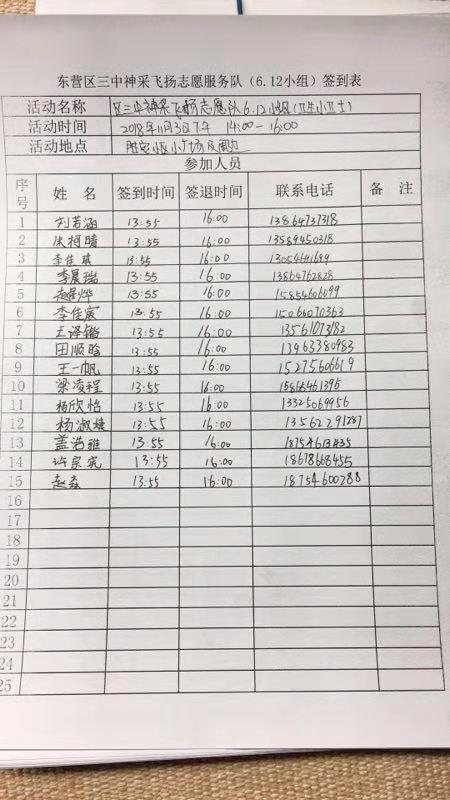 东营区三中神采飞扬志愿服务队（6.12小组）签到表
活动名称 区三中神采飞扬志愿队6.12小组（卫生小卫士）
活动时间 2018年11月3日下午 14:00-16:00
活动地点 胜宏小区小广场及周边
参加人员
序号 姓名 签到时间 签退时间 联系电话 备注
1 刘若涵 13:55 16:00 13864737318
2 柯晴 13:55 16:00 13589450318
3 李佳琪 13:55 16:00 13054641699
4 李晨瑞 13:55 16:00 13864762828
5 赵星烨 13:55 16:00 15854606099
6 李佳宸 13:55 16:00 15066070363
7 王泽锴 13:55 16:00 13561073182
8 田顺晗 13:55 16:00 13963380983
9 王一帆 13:55 16:00 15275606619
10 梁凌程 13:55 16:00 15866461395
11 杨欣怡 13:55 16:00 13325069956
12 杨淑婕 13:55 16:00 13562291287
13 盖浩雅 13:55 16:00 18754613435
14 许宗宪 13:55 16:00 18678668455
15 赵淼 13:55 16:00 18754600288
16
17
18
19
20
21
22
23
24
25